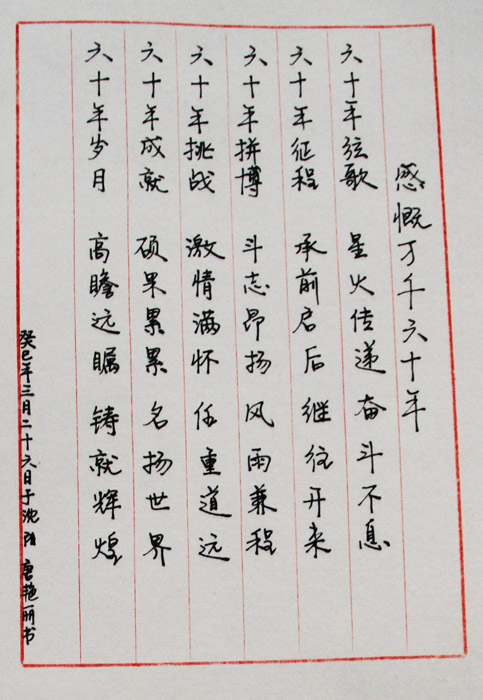 感慨万千六十年
六十年弦歌 星火传递 奋斗不息
六十年征程 承前启后 继往开来
六十年拼博 斗志昂扬 风雨兼程
六十年挑战 激情满怀 任重道远
六十年成就 硕果累累 名扬世界
六十年岁月 高瞻远瞩 铸就辉煌
癸巳年三月二十六日于沈阳 唐艳丽书